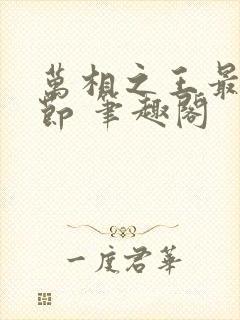 萬相之王最
節 筆趣閣
一度君華